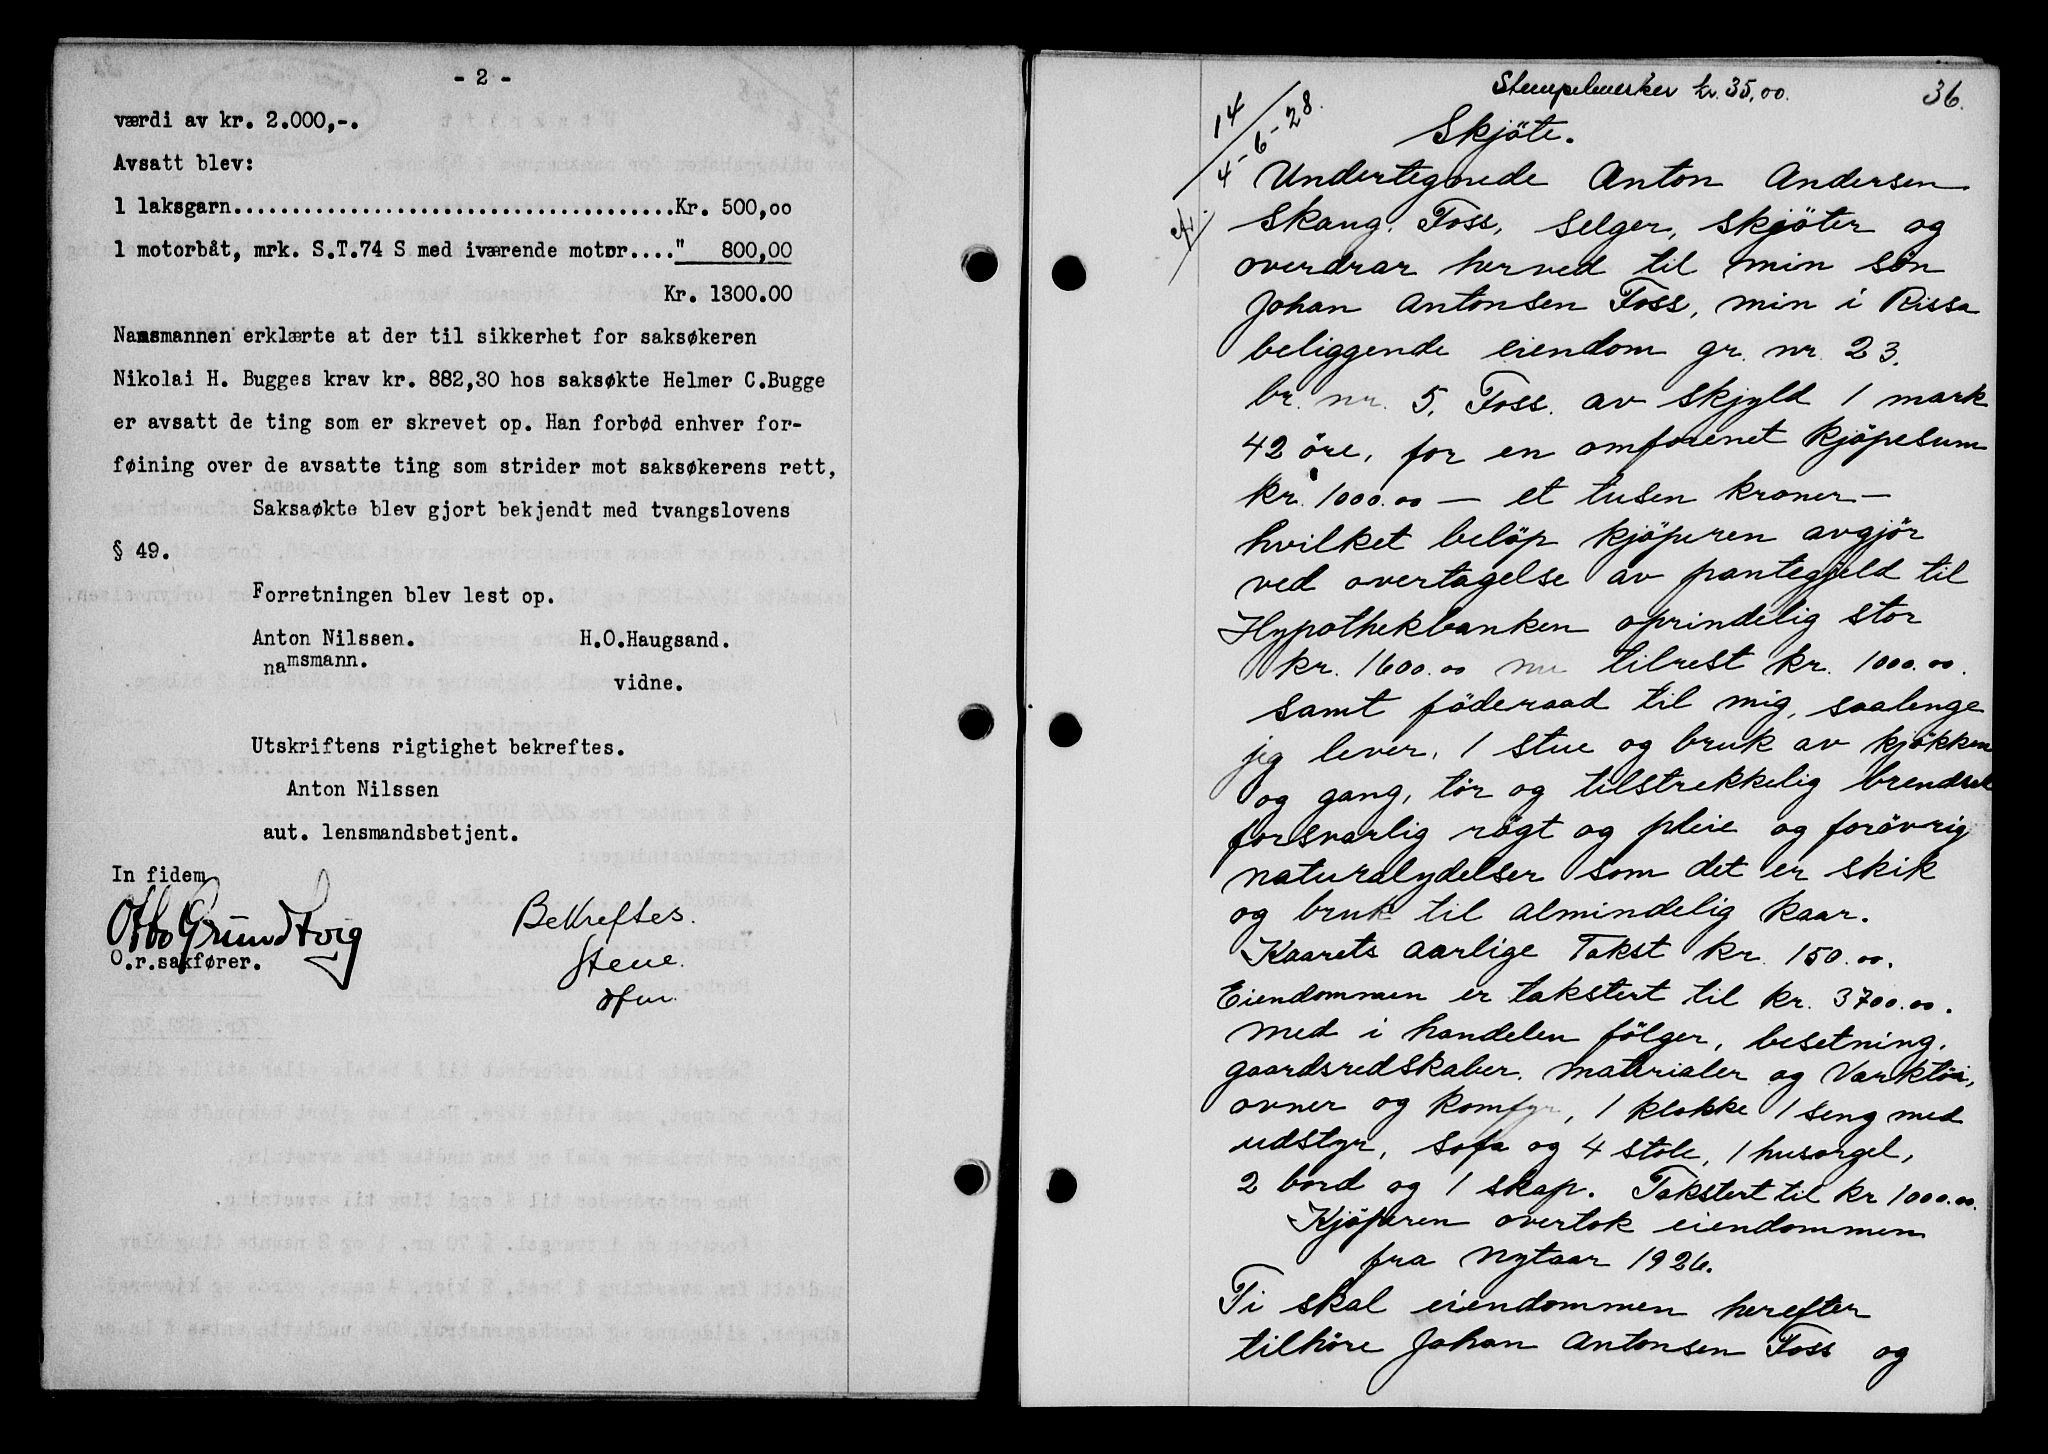 - 2 -
værdi av kr. 2.000,-.
Avsatt blev:
1 laksgarn......................................Kr. 500,00
1 motorbåt, mrk. S.T.74 S med iværende motor...." 800,00
Kr. 1300.00
Namsmannen erklærte at der til sikkerhet for saksøkeren
Nikolai H. Bugges krav kr. 882,30 hos saksøkte Helmer C.Bugge
er avsatt de ting som er skrevet op. Han forbød enhver for-
føining over de avsatte ting som strider mot saksøkerens rett,
Saksaøkte blev gjort bekjendt med tvangslovens
§ 49.
Forretningen blev lest op.
Anton Nilssen. H.O.Haugsand.
namsmann.
vidne.
Utskriftens rigtighet bekreftes.
Anton Nilssen
aut. lensmandsbetjent.
In fidem
Otto Grundtvig
O.r.sakfører.
Bekreftes.
Stene.
Stempelmerker kr. 35,00. 36.
14
4-6-28.
Skjöte.
Undertegnede Anton Andersen
Skaug, Foss, selger, skjöter og
overdrar herved til min sön
Johan Antonsen Foss, min i Rissa
beliggende eiendom gr. nr. 23.
br. nr. 5. Foss. av skjyld 1 mark
42 öre, for en omforenet kjöpesum
kr. 1000.00 — et tusen kroner —
hvilket belöp kjöperen avgjör
ved overtagelse av pantegjeld til
Hypothekbanken oprindelig stor
kr. 1600.00 nu tilrest kr. 1000.00.
samt föderaad til mig, saalenge
jeg lever, 1 stue og bruk av kjökken
og gang, tör og tilstrekkelig brendsel
forsvarlig rögt og pleie og forövrig
naturalydelser som det er skik
og bruk til almindelig kaar.
Kaarets aarlige Takst kr. 150.00.
Eiendommen er takstert til kr. 3700.00.
Med i handelen fölger, besetning,
gaardsredskaber, materialer og Værktöi,
ovner og komfyr, 1 klokke 1 seng med
udstyr, sofa og 4 stole, 1 husorgel,
2 bord og 1 skap. Takstert til kr 1000.00.
Kjöperen overtok eiendommen
fra nytaar 1926.
Ti skal eiendommen herefter
tilhöre Johan Antonsen Foss og